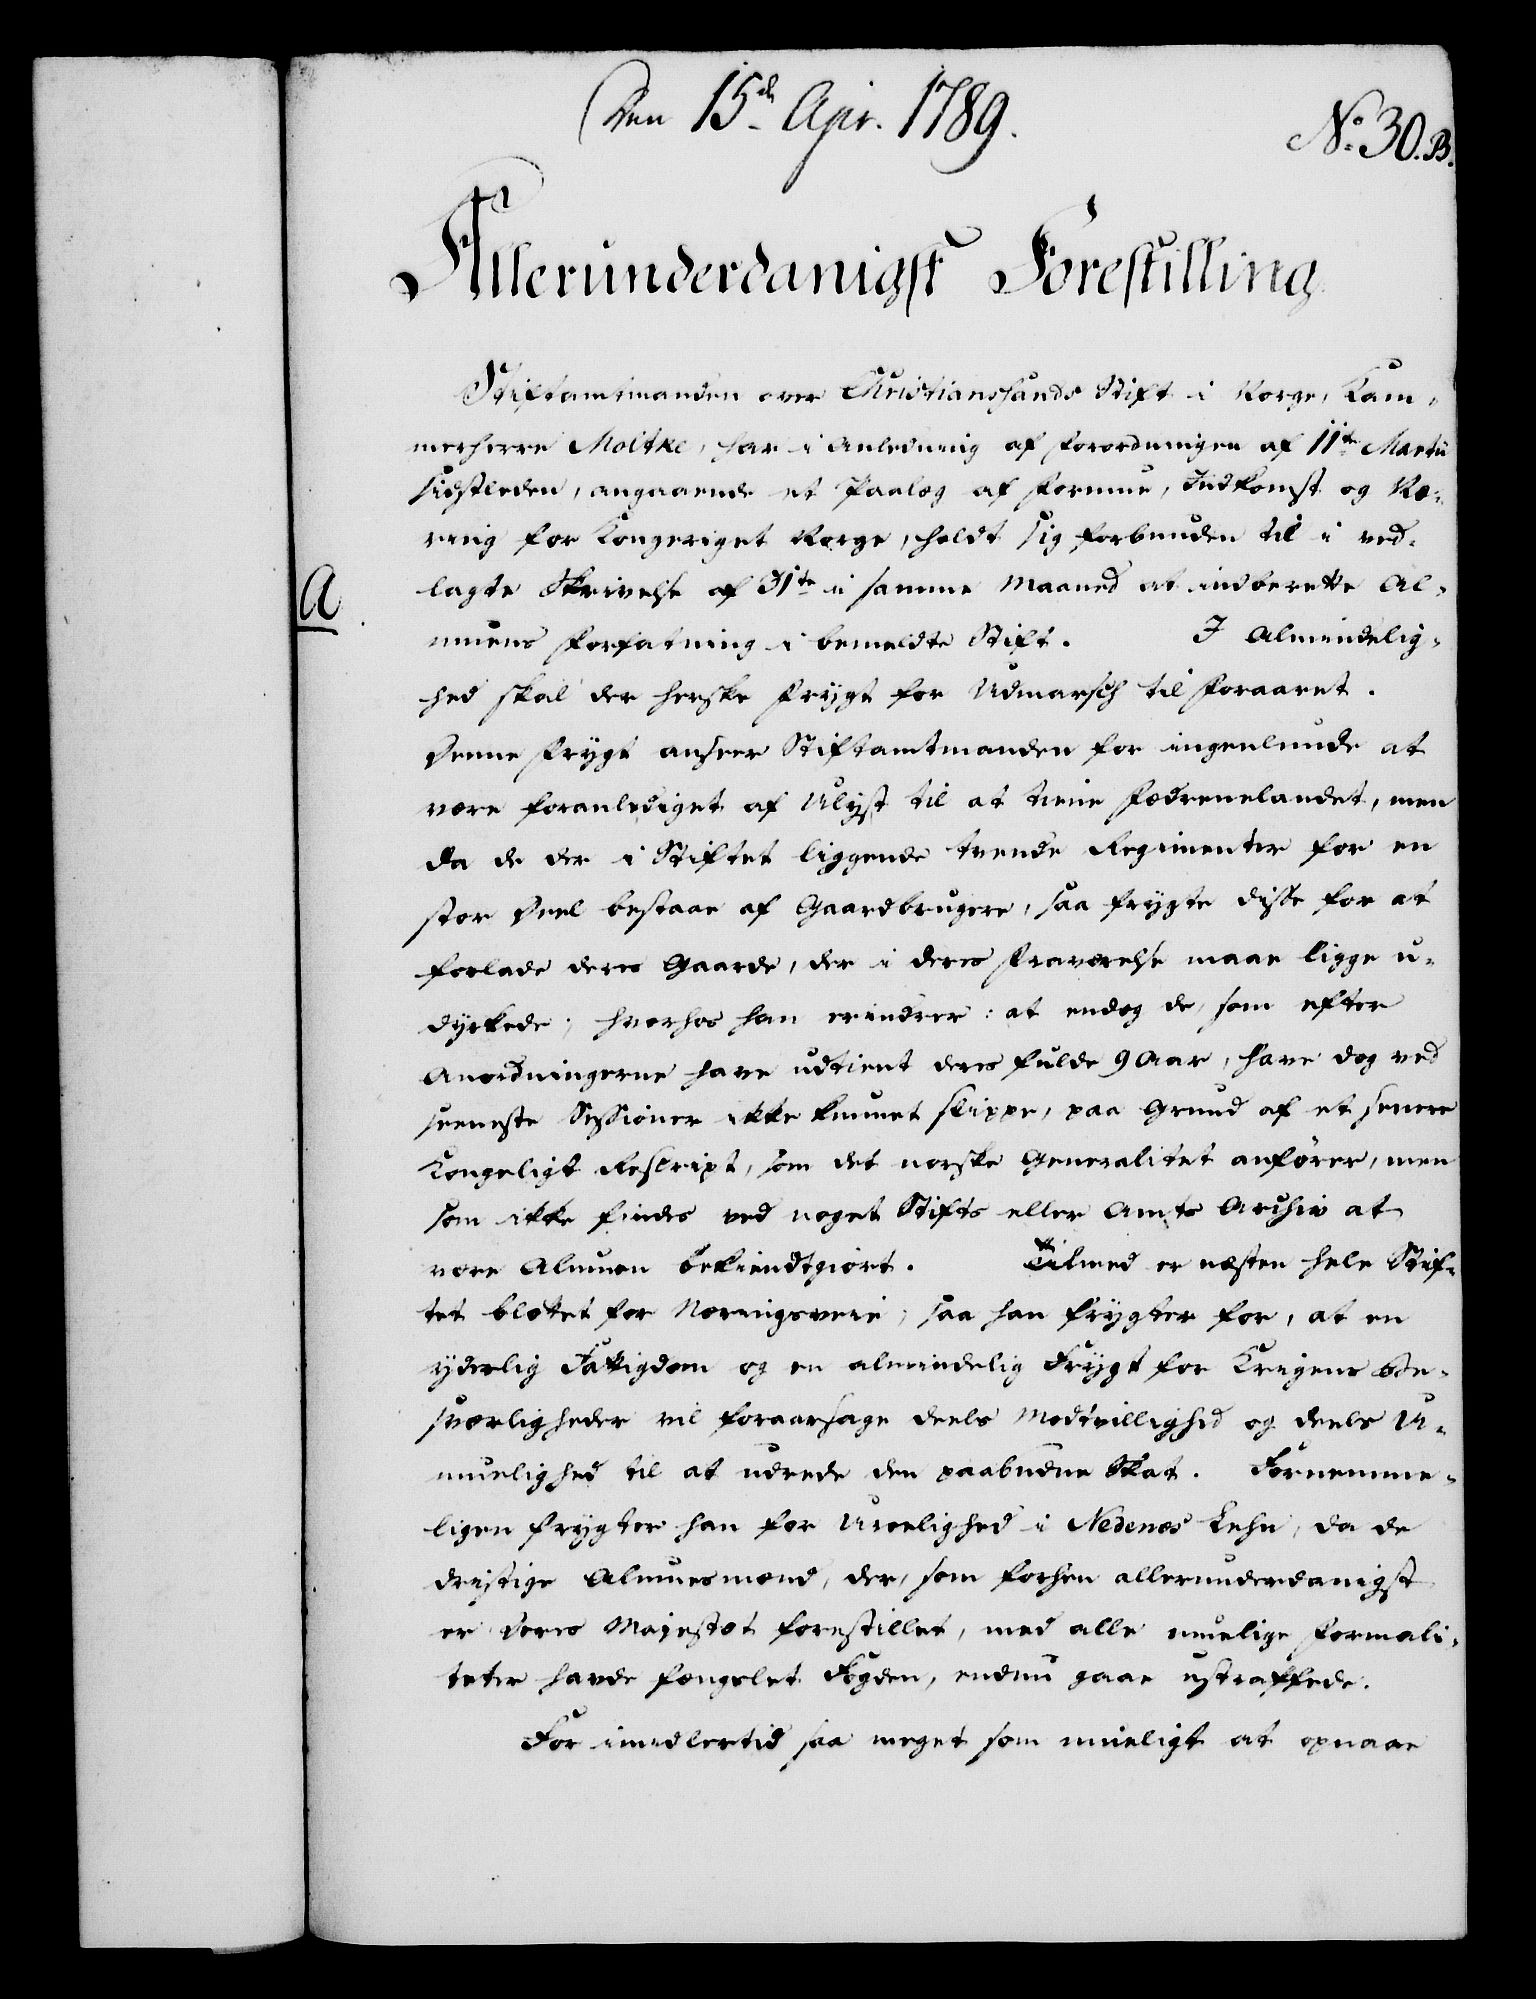 Den 15de Apr. 1789.
No 30.B.
Allerunderdanigst Forestilling
Stiftamtmanden over Christiansands Stift i Norge, Kam-
merherre Moltke, har i Anledning af Forordningen af 11te Martii
sidstleden, angaaende et Paalæg af Formue, Indkomst og Næ-
ring for Kongeriget Norge, holdt sig forbunden til i ved-
lagte Skrivelse af 31te i samme Maaned at indberette Al-
A
muens Forfatning i bemeldte Stift. I Almindelig-
hed skal der herske Frygt for Udmarsch til Foraaret.
Denne Frygt anseer Stiftamtmanden for ingenlunde at
være foranlediget af Ulyst til at tiene Fædrenelandet, men
da de der i Stiftet liggende tvende Regimenter for en
stor Deel bestaae af Gaardbrugere, saa frygte disse for at
forlade deres Gaarde, der i deres Fraværelse maae ligge u-
dyrkede; hvorhos han erindrer: at endog de, som efter
Anordningerne have udtient deres fulde 9 Aar, have dog ved
seeneste Sessioner ikke kunnet slippe, paa Grund af et senere
Kongeligt Rescript, som det norske Generalitet anfører, men
som ikke findes ved noget Stifts eller Amts Archiv at
være Almuen bekiendtgiort. Tilmed er næsten hele Stif-
tet blottet for Næringsveie; saa han frygter for, at en
yderlig Fattigdom og en almindelig Frygt for Krigens Be-
sværligheder vil foraarsage deels Modvillighed og deels U-
muelighed til at udrede den paabudne Skat. Fornemme-
ligen frygter han for Uroelighed i Nedenæs Lehn, da de
dristige Almuesmænd, der, som forhen allerunderdanigst
er Deres Majestæt forestillet, med alle muelige Formali-
teter havde fængslet Fogden, endnu gaae ustraffede.
For imidlertid saa meget som mueligt at opnaae